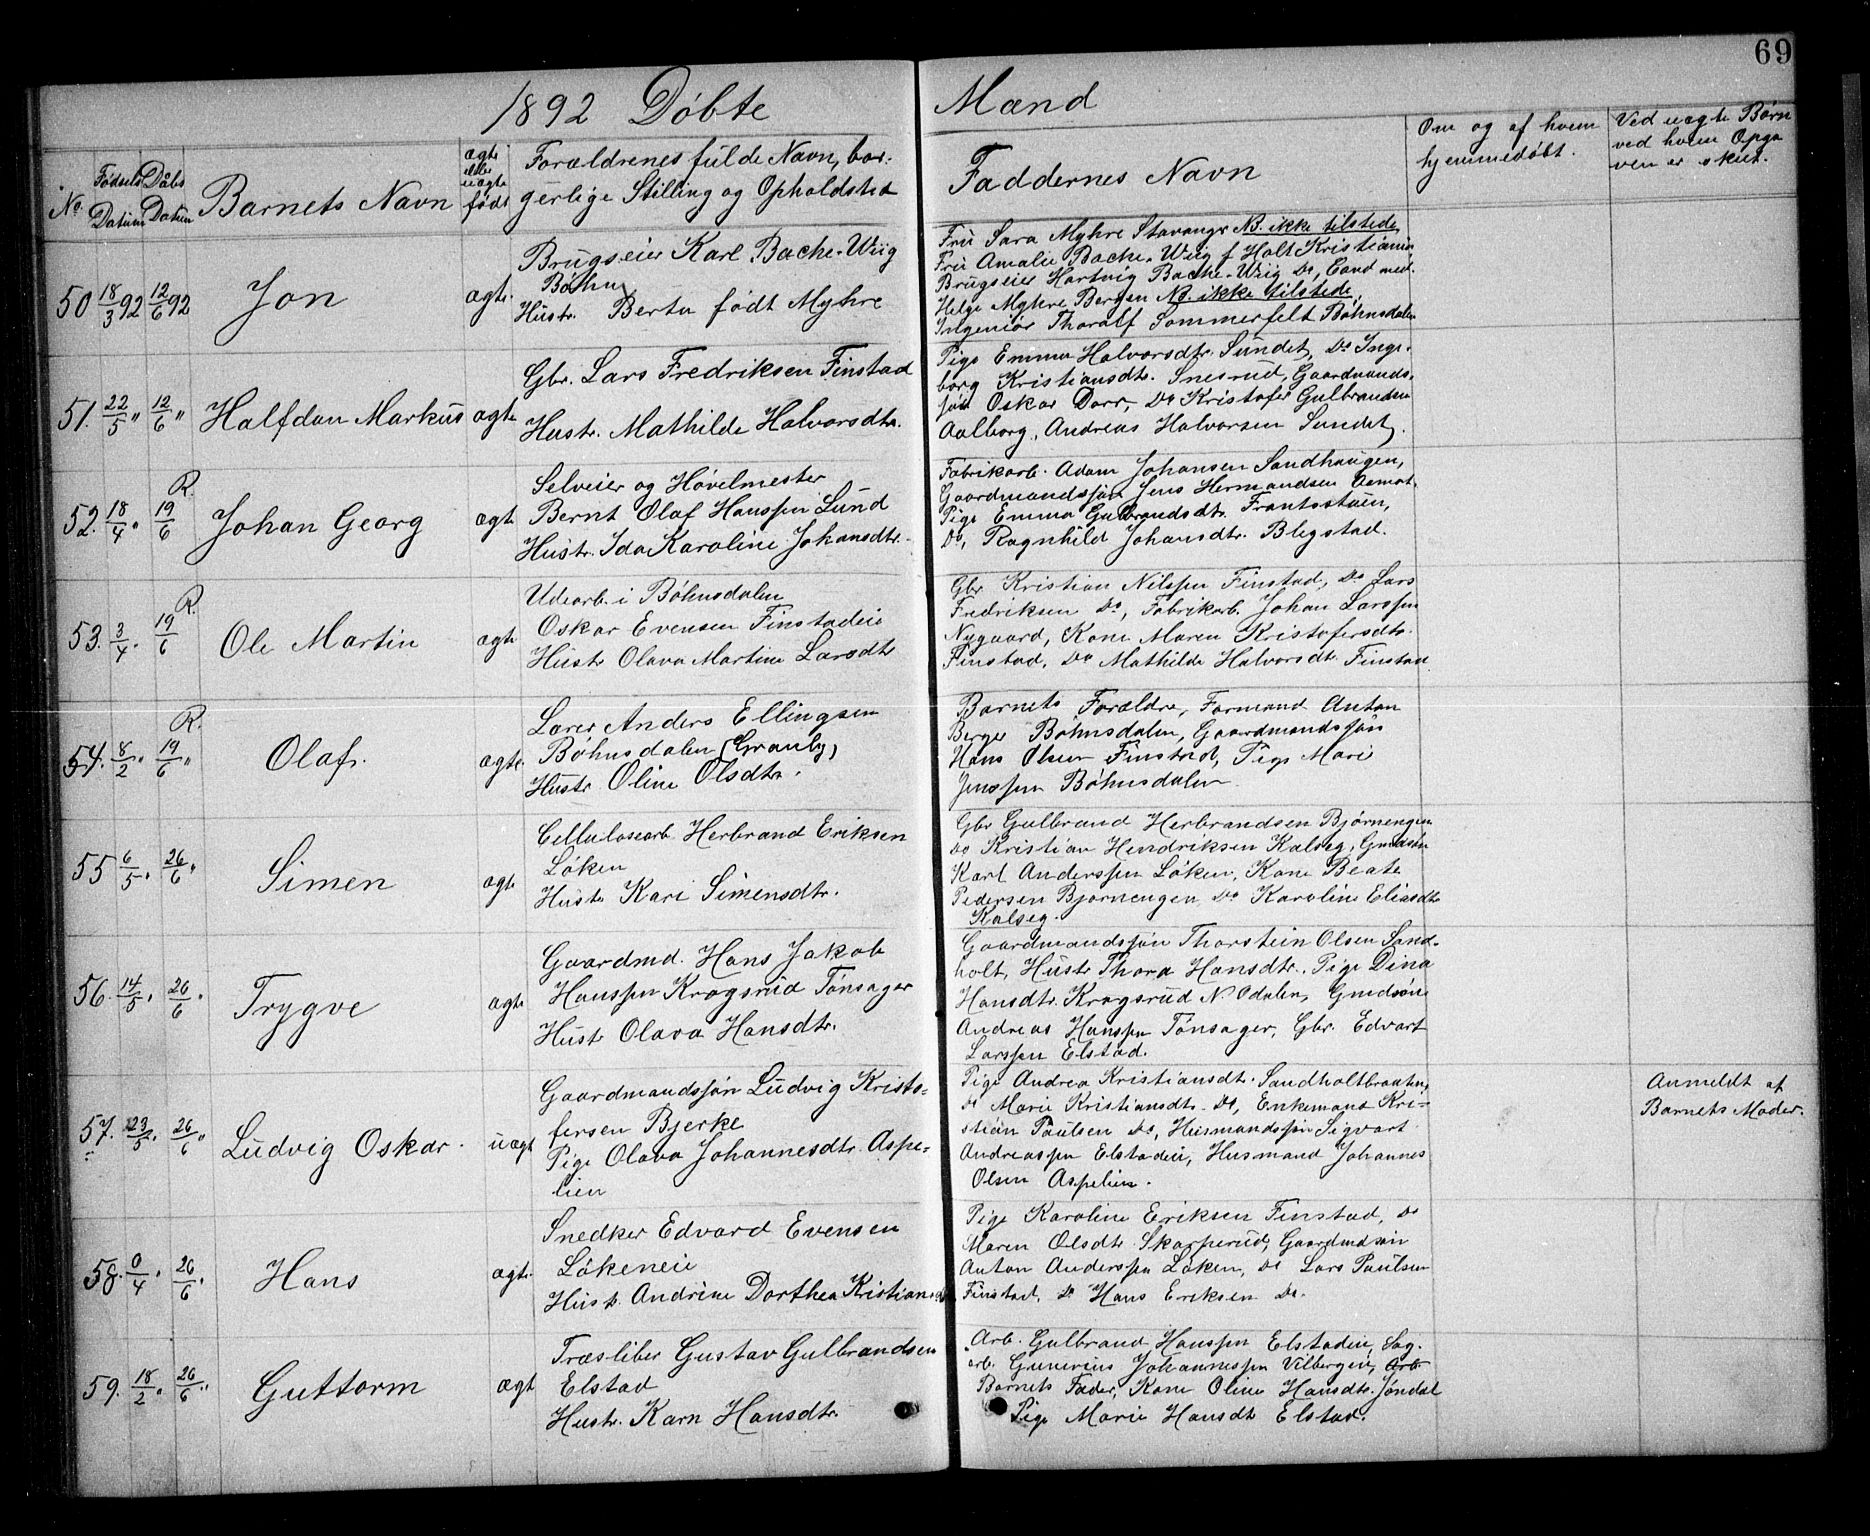 69
1892 Döbte Mænd
No.
Fødsels Datum
Daabs Datum
Barnets Navn
ægte eller uægte født
Forældrenes fulde Navn, bor-
gerlige Stilling og Opholdsted
Faddernes Navn
Om og af hvem
hjemmedöbt.
Ved uægte Børn
ved hvem Opga
ven er skeet.
50 18/3 92 12/6 92 Jon ægt.
Brugseier Karl Bache-Wiig
Böhn
Hustr. Berta født Myhre
Fru Sara Myhre Stavanger NB. ikke tilstede
Fru Amalie Bache-Wiig f Holt Kristiania
Brugseier Hartvig Bache-Wiig Do, Cand med.
Helge Myhre Bergen NB. ikke tilstede,
Ingeniör Thoralf Sommerfelt Böhnsdalen
51. 22/5 " 12/6 " Halfdan Markus ægte
Gbr. Lars Fredriksen Finstad
Hustr. Mathilde Halvorsdtr.
Pige Emma Halvorsdtr. Sundet, Do Inge-
borg Kristiansdtr. Snesrud, Gaardmands-
søn Oskar Dorr, Do Kristofer Gulbrandsen
Aalborg, Andreas Halvorsen Sundet.
52. 18/4 " R. 19/6 Johan Georg ægte
Selveier og Hövelmester
Bernt Olaf Hanssen Lund
Hustr. Ida Karoline Johansdtr.
Fabrikarb. Adam Johansen Sandhaugen,
Gaardmandssön Jens Hermandsen
Pige Emma Gulbrandsdtr.
Do, Ragnhild Johansdtr. Blegstad.
53. 3/4 " R. 19/6 Ole Martin ægte
Udearb. i Böhnsdalen
Oskar Evensen Finstadeie
Hustr Olava Martine Larsdtr
Gbr Kristian Nilssen Finstad, Do Lars
Fredriksen Do, Fabrikarb. Johan Larssen
Nygaard, Kone Maren Kristofersdtr.
Finstad, Do Mathilde Halvorsdtr Finstad
54. 8/2 " R. 19/6 " Olaf. ægte.
Lærer Anders Ellingsen
Böhnsdalen (Granly)
Hustr Oline Olsdtr.
Barnets Forældre, Formand Anton
Berger Böhnsdalen, Gaardmandssön
Hans Olsen Finstad, Pige Mari
Jenssen Böhnsdalen
55 6/5 " 26/6 " Simen ægte
Cellulosearb. Herbrand Eriksen
Löken
Hustr Kari Simensdtr.
Gbr Gulbrand Herbrandsen Björnengen
Do Kristian Hendriksen Kalseg, Gmdsön
Karl Anderssen Löken, Kone Beate
Pedersen Bjornengen Do Karoline Eliasdtr
Kalseg.
56. 14/5 " 26/6 " Trygve ægte
Gaardmd. Hans Jakob
Hanssen Krogsrud Tönsager
Hustr Olava Hansdtr.
Gaardmandssön Thorstein Olsen Sand-
holt, Hustr Thora Hansdtr., Pige Dina
Hansdtr. Krogsrud N. Odalen, Gmdsön
Andreas Hanssen Tönsager, Gbr. Edvart
Larssen Elstad.
57. 23/5 " 26/6 " Ludvig Oskar. uægt
Gaardmandssön Ludvig Kristo-
fersen Bjerke
Pige Olava Johannesdtr. Aspe-
lien
Pige Andrea Kristiansdtr. Sandholtbraaten,
Do Marie Kristiansdtr. Do, Enkemand Kri-
stian Paulsen Do, Husmandssön Sigvart
Andreassen Elstadeie, Husmand Johannes
Olsen Aspelien.
Anmeldt af
Barnets Moder.
58. 0/4 " 26/6 " Hans ægte.
Snedker Edvard Evensen
Lökeneie
Hustr. Andrine Dorthea Kristiansdtr.
Pige Karoline Eriksen Finstad, Do
Maren Olsdtr Skarperud, Gaardmdsön
Anton Anderssen Löken, Do Lars Paulsen
Finstad, Do Hans Eriksen Do.
59. 18/2 " 26/6 " Guttorm ægt
Træsliber Gustav Gulbrandsen
Elstad
Hustr. Karn Hansdtr.
Arb. Gulbrand Hanssen Elstadeie, Sag-
arb. Gunerius Johannessen Vilbergeie, Arb
Barnets Fader, Kone Oline Hansdtr. Jöndal
Pige Marie Hansdtr Elstad.